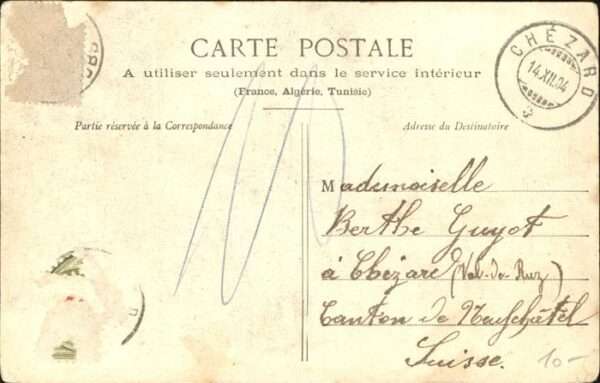 CARTE POSTALE
A utiliser seulement dans le service intérieur
(France, Algérie, Tunisie)
CHÉZARD
14.XII.04
Partie réservée à la Correspondance
Adresse du Destinataire
Mademoiselle
Berthe Guyot
à Chézard (Val-de-Ruz)
Canton de Neufchâtel
Suisse.
10-